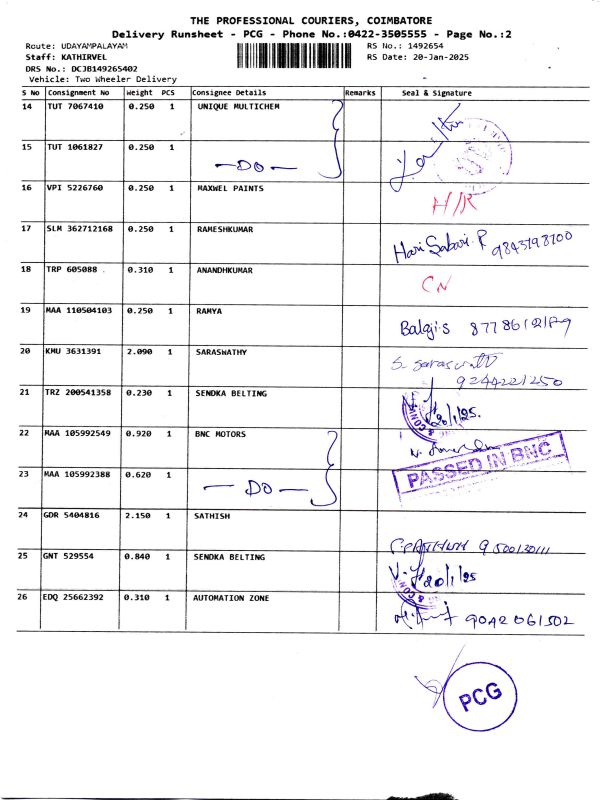 THE PROFESSIONAL COURIERS, COIMBATORE
Delivery Runsheet - PCG - Phone No.:0422-3505555 - Page No.:2
Route: UDAYAMPALAYAM RS No.: 1492654
Staff: KATHIRVEL RS Date: 20-Jan-2025
DRS No.: DCJB149265402
Vehicle: Two Wheeler Delivery
S No Consignment No Weight PCS Consignee Details Remarks Seal & Signature
14 TUT 7067410 0.250 1 UNIQUE MULTICHEM
15 TUT 1061827 0.250 1
—DO—
16 VPI 5226760 0.250 1 MAXWEL PAINTS
H/R
17 SLM 362712168 0.250 1 RAMESHKUMAR
Hari Sabari. R 9843798700
18 TRP 605088 0.310 1 ANANDHKUMAR
CN
19 MAA 110504103 0.250 1 RAMYA
Balgis
20 KMU 3631391 2.090 1 SARASWATHY
S. 9244221250
21 TRZ 200541358 0.230 1 SENDKA BELTING
20/1/25.
22 MAA 105992549 0.920 1 BNC MOTORS
PASSED IN BNC
23 MAA 105992388 0.620 1
—DO—
24 GDR 5404816 2.150 1 SATHISH
25 GNT 529554 0.840 1 SENDKA BELTING
20/1/25
26 EDQ 25662392 0.310 1 AUTOMATION ZONE
9042061302
PCG